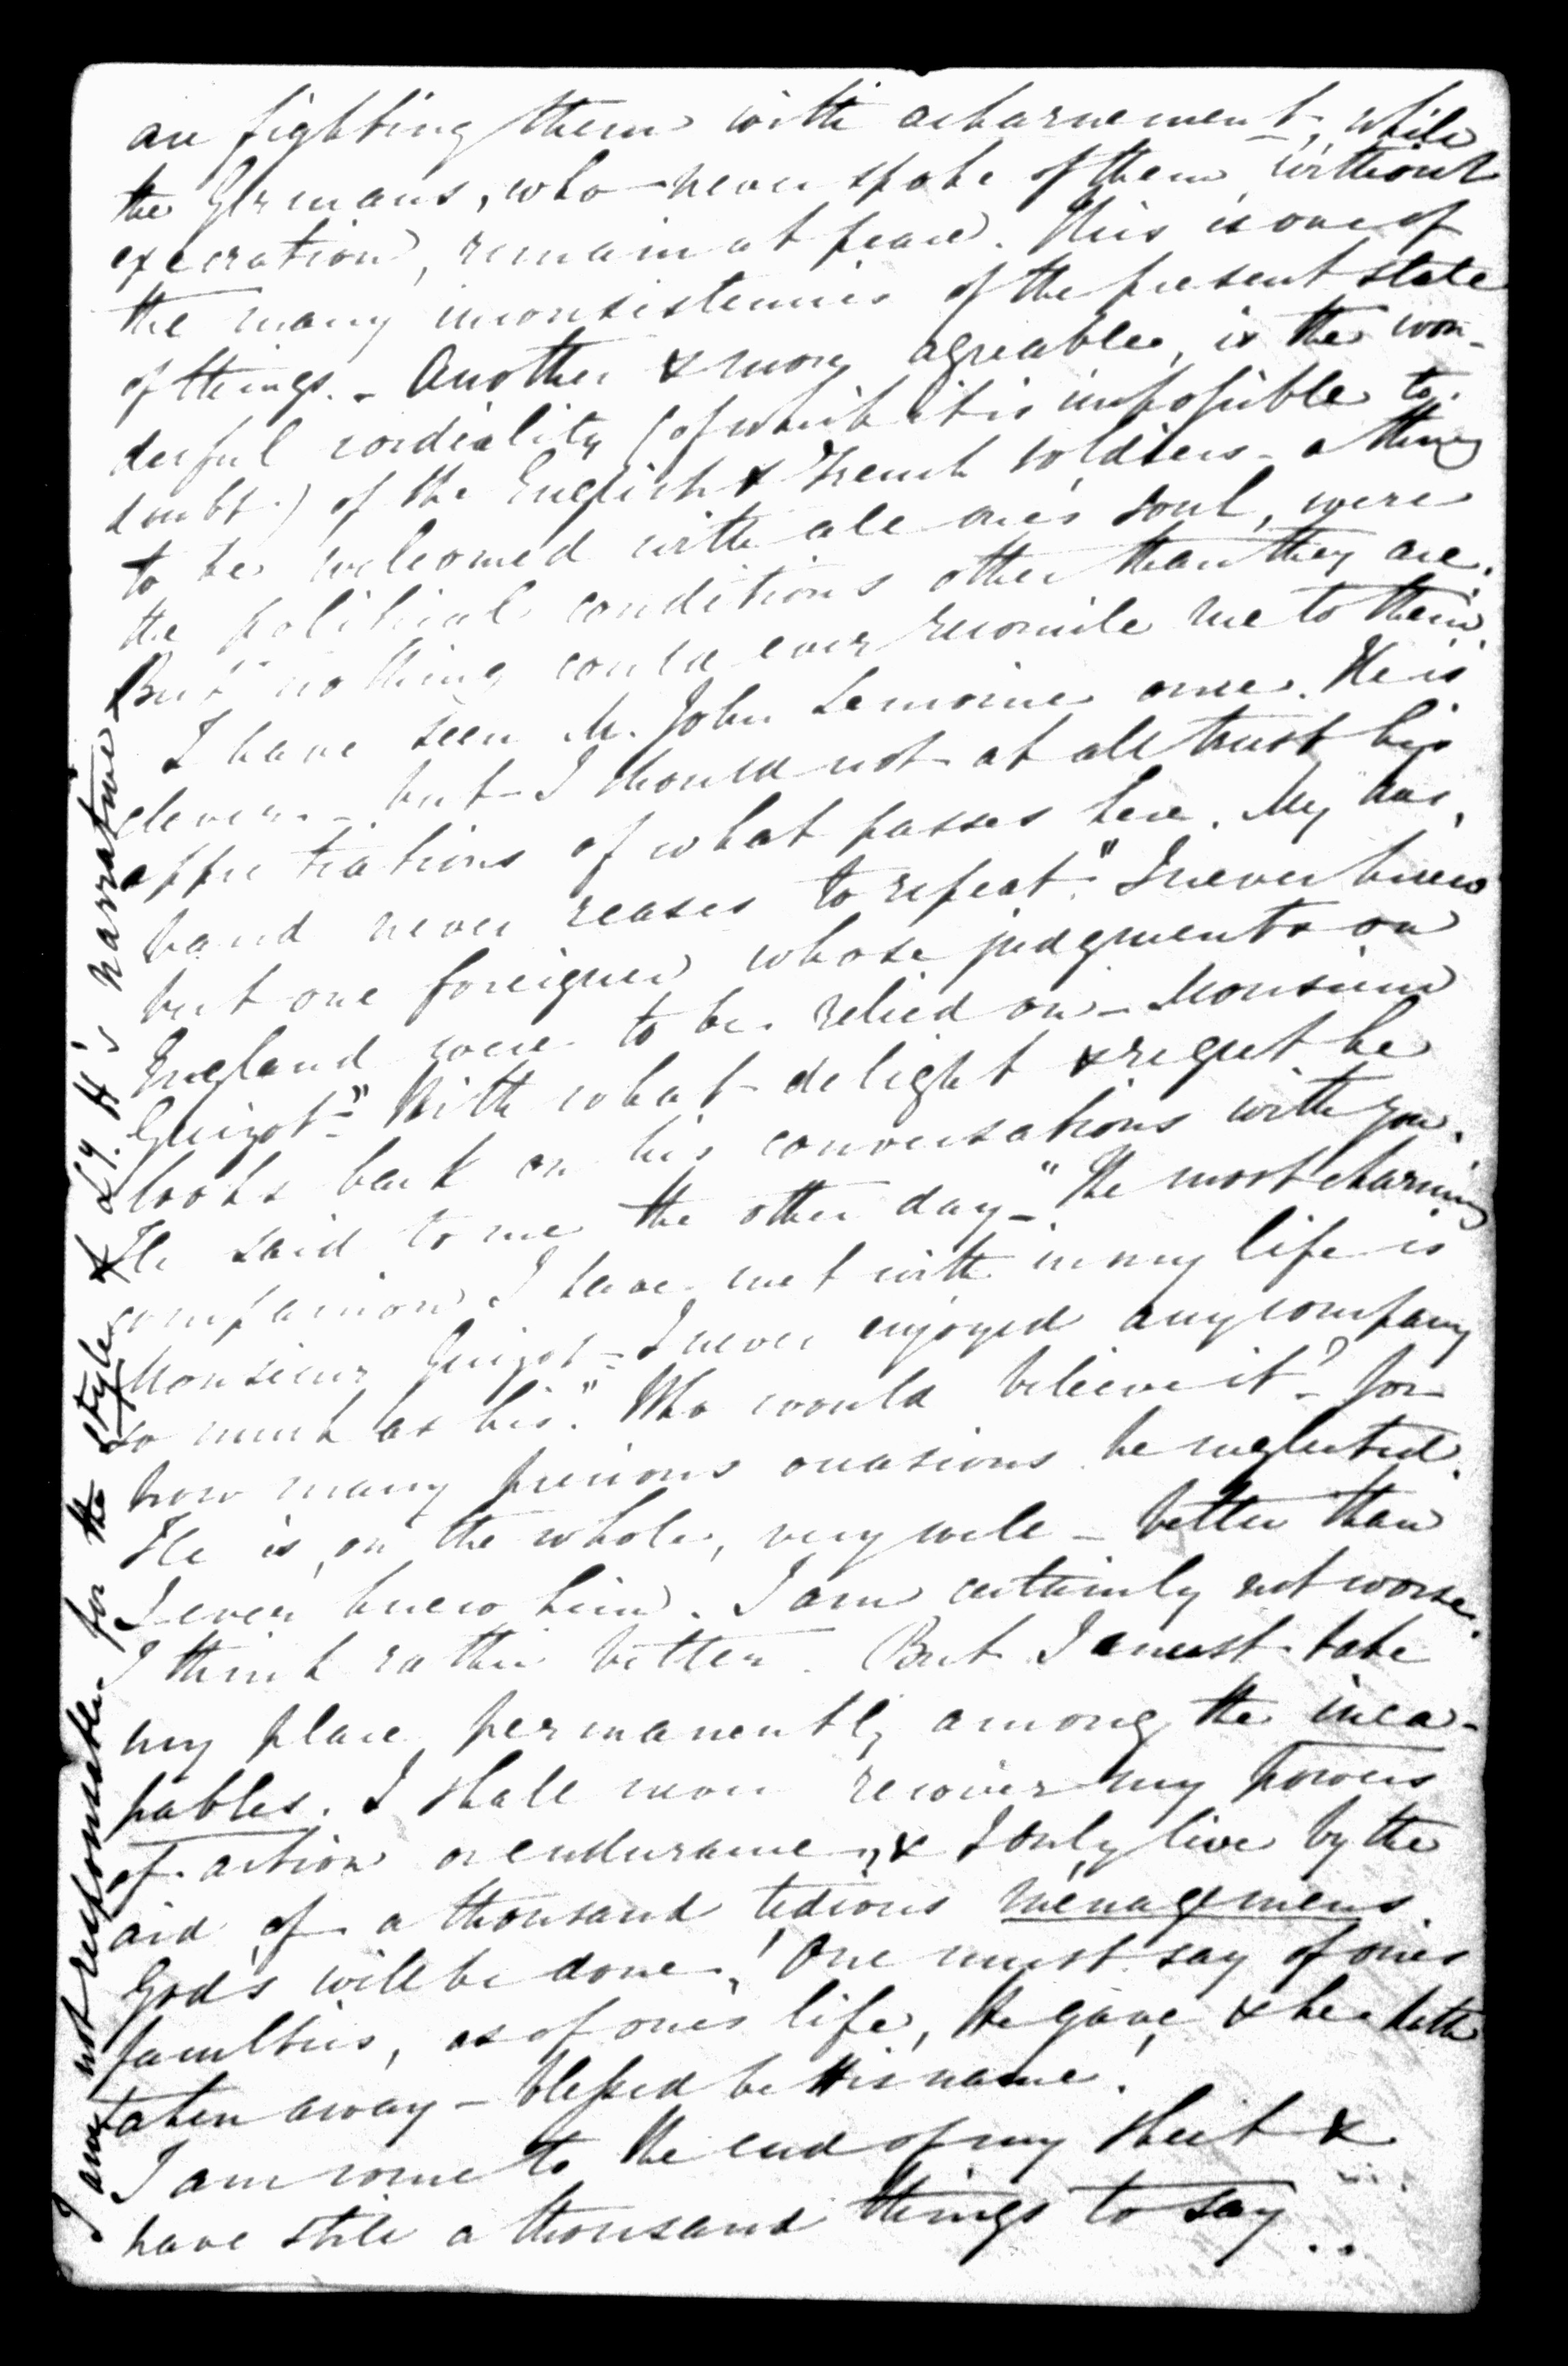 are fighting them with acharnement, while
the Germans, who never spoke of them without
execration, remain at peace. This is one of
the many inconsistencies of the present state
of things. - Another & more agreable, is the won-
derful cordiality (of which it is impossible to
doubt.) of the English & French soldiers - a thing
to be welcomed with all one's soul, were
the political conditions other than they are.
But nothing could ever reconcile me to them.
I have seen M. John Lemoine once. He is
clever - but I should not at all trust his
appreciations of what passes here. My hus.
band never ceases to repeat "I never knew
but one foreigner whose judgments on
England were to be relied on - Monsieur
Guizot" - With what delight & regret he
looks back on his conversations with you.
He said to me the other day - "The most charming
companion I have met with in my life is
Monsieur Guizot - I never enjoyed any company
so much as his." Who would believe it? - for
how many precious occasions he neglected.
He is, on the whole, very well - better than
I ever knew him. I am certainly not worse.
I think rather better. But I must take
my place permanently among the inca-
pables. I shall never recover my powers
of action or endurance, & I only live by the
aid of a thousand tedious ménagemens.
God's will be done! One must say of one's
faculties, as of one's life, He gave & he hath
taken away - blessed be His name!
I am come to the end of my sheet &
have still a thousand things to say..
I am not responsable for the style of Ly. H's narrative